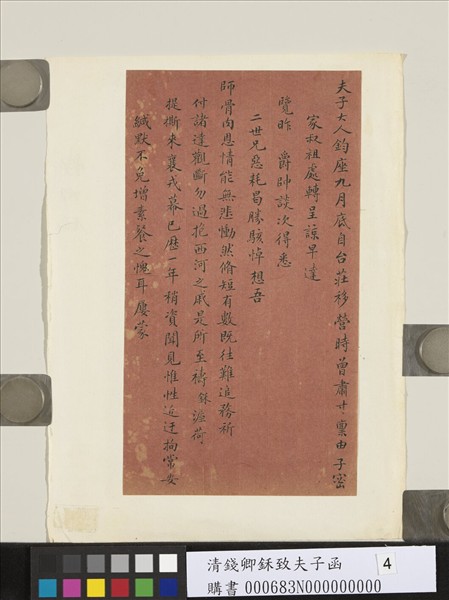 夫子大人鈞座九月底自台莊移營時曾肅寸稟由子密
家叔祖處轉呈諒早達
覽昨　爵帥談次得悉
二世兄惡耗曷勝駭悼想吾
師骨肉恩情能無悲慟然脩短有數既往難追務祈
付諸達觀斷勿過抱西河之戚是所至禱鉌瀣荷
提撕來襄戎幕已歷一年稍資聞見惟性近迂拘常安
緘默不免增素餐之愧耳屢蒙
清錢卿鉌致夫子函
4
購書 000683N000000000